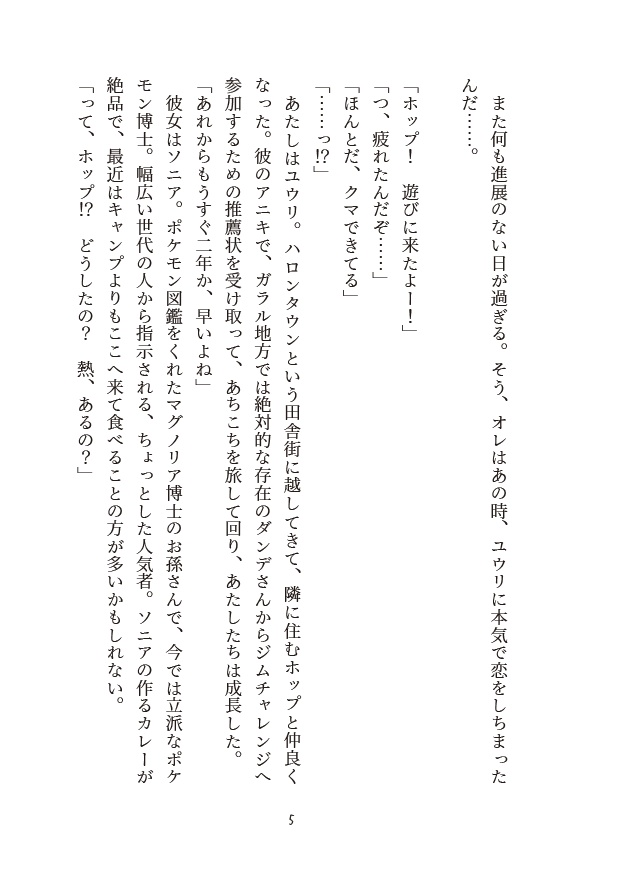 また何も進展のない日が過ぎる。そう、オレはあの時、ユウリに本気で恋をしちまった
んだ……。
「ホップ！　遊びに来たよー！」
「つ、疲れたんだぞ……」
「ほんとだ、クマできてる」
「……っ!?」
　あたしはユウリ。ハロンタウンという田舎街に越してきて、隣に住むホップと仲良く
なった。彼のアニキで、ガラル地方では絶対的な存在のダンデさんからジムチャレンジへ
参加するための推薦状を受け取って、あちこちを旅して回り、あたしたちは成長した。
「あれからもうすぐ二年か、早いよね」
　彼女はソニア。ポケモン図鑑をくれたマグノリア博士のお孫さんで、今では立派なポケ
モン博士。幅広い世代の人から指示される、ちょっとした人気者。ソニアの作るカレーが
絶品で、最近はキャンプよりもここへ来て食べることの方が多いかもしれない。
「って、ホップ!?　どうしたの？　熱、あるの？」
5